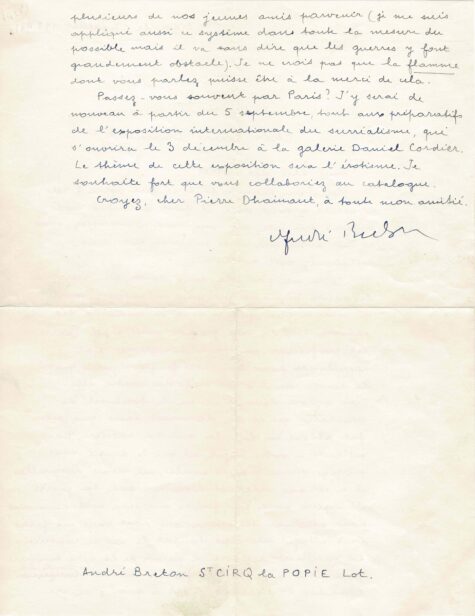 plusieurs de nos jeunes amis parvenir (je me suis
appliqué aussi ce système dans toute la mesure du
possible mais il va sans dire que les guerres y font
grandement obstacle). Je ne crois pas que la flamme
dont vous parlez puisse être à la merci de cela.
Passez-vous souvent par Paris? J'y serai de
nouveau à partir du 5 septembre, tout aux préparatifs
de l'exposition internationale du surréalisme, qui
s'ouvrira le 3 décembre à la galerie Daniel Cordier.
Le thème de cette exposition sera l'érotisme. Je
souhaite fort que vous collaboriez au catalogue.
Croyez, cher Pierre Dhainaut, à toute mon amitié.
André Breton
André Breton St CIRQ la POPIE Lot.